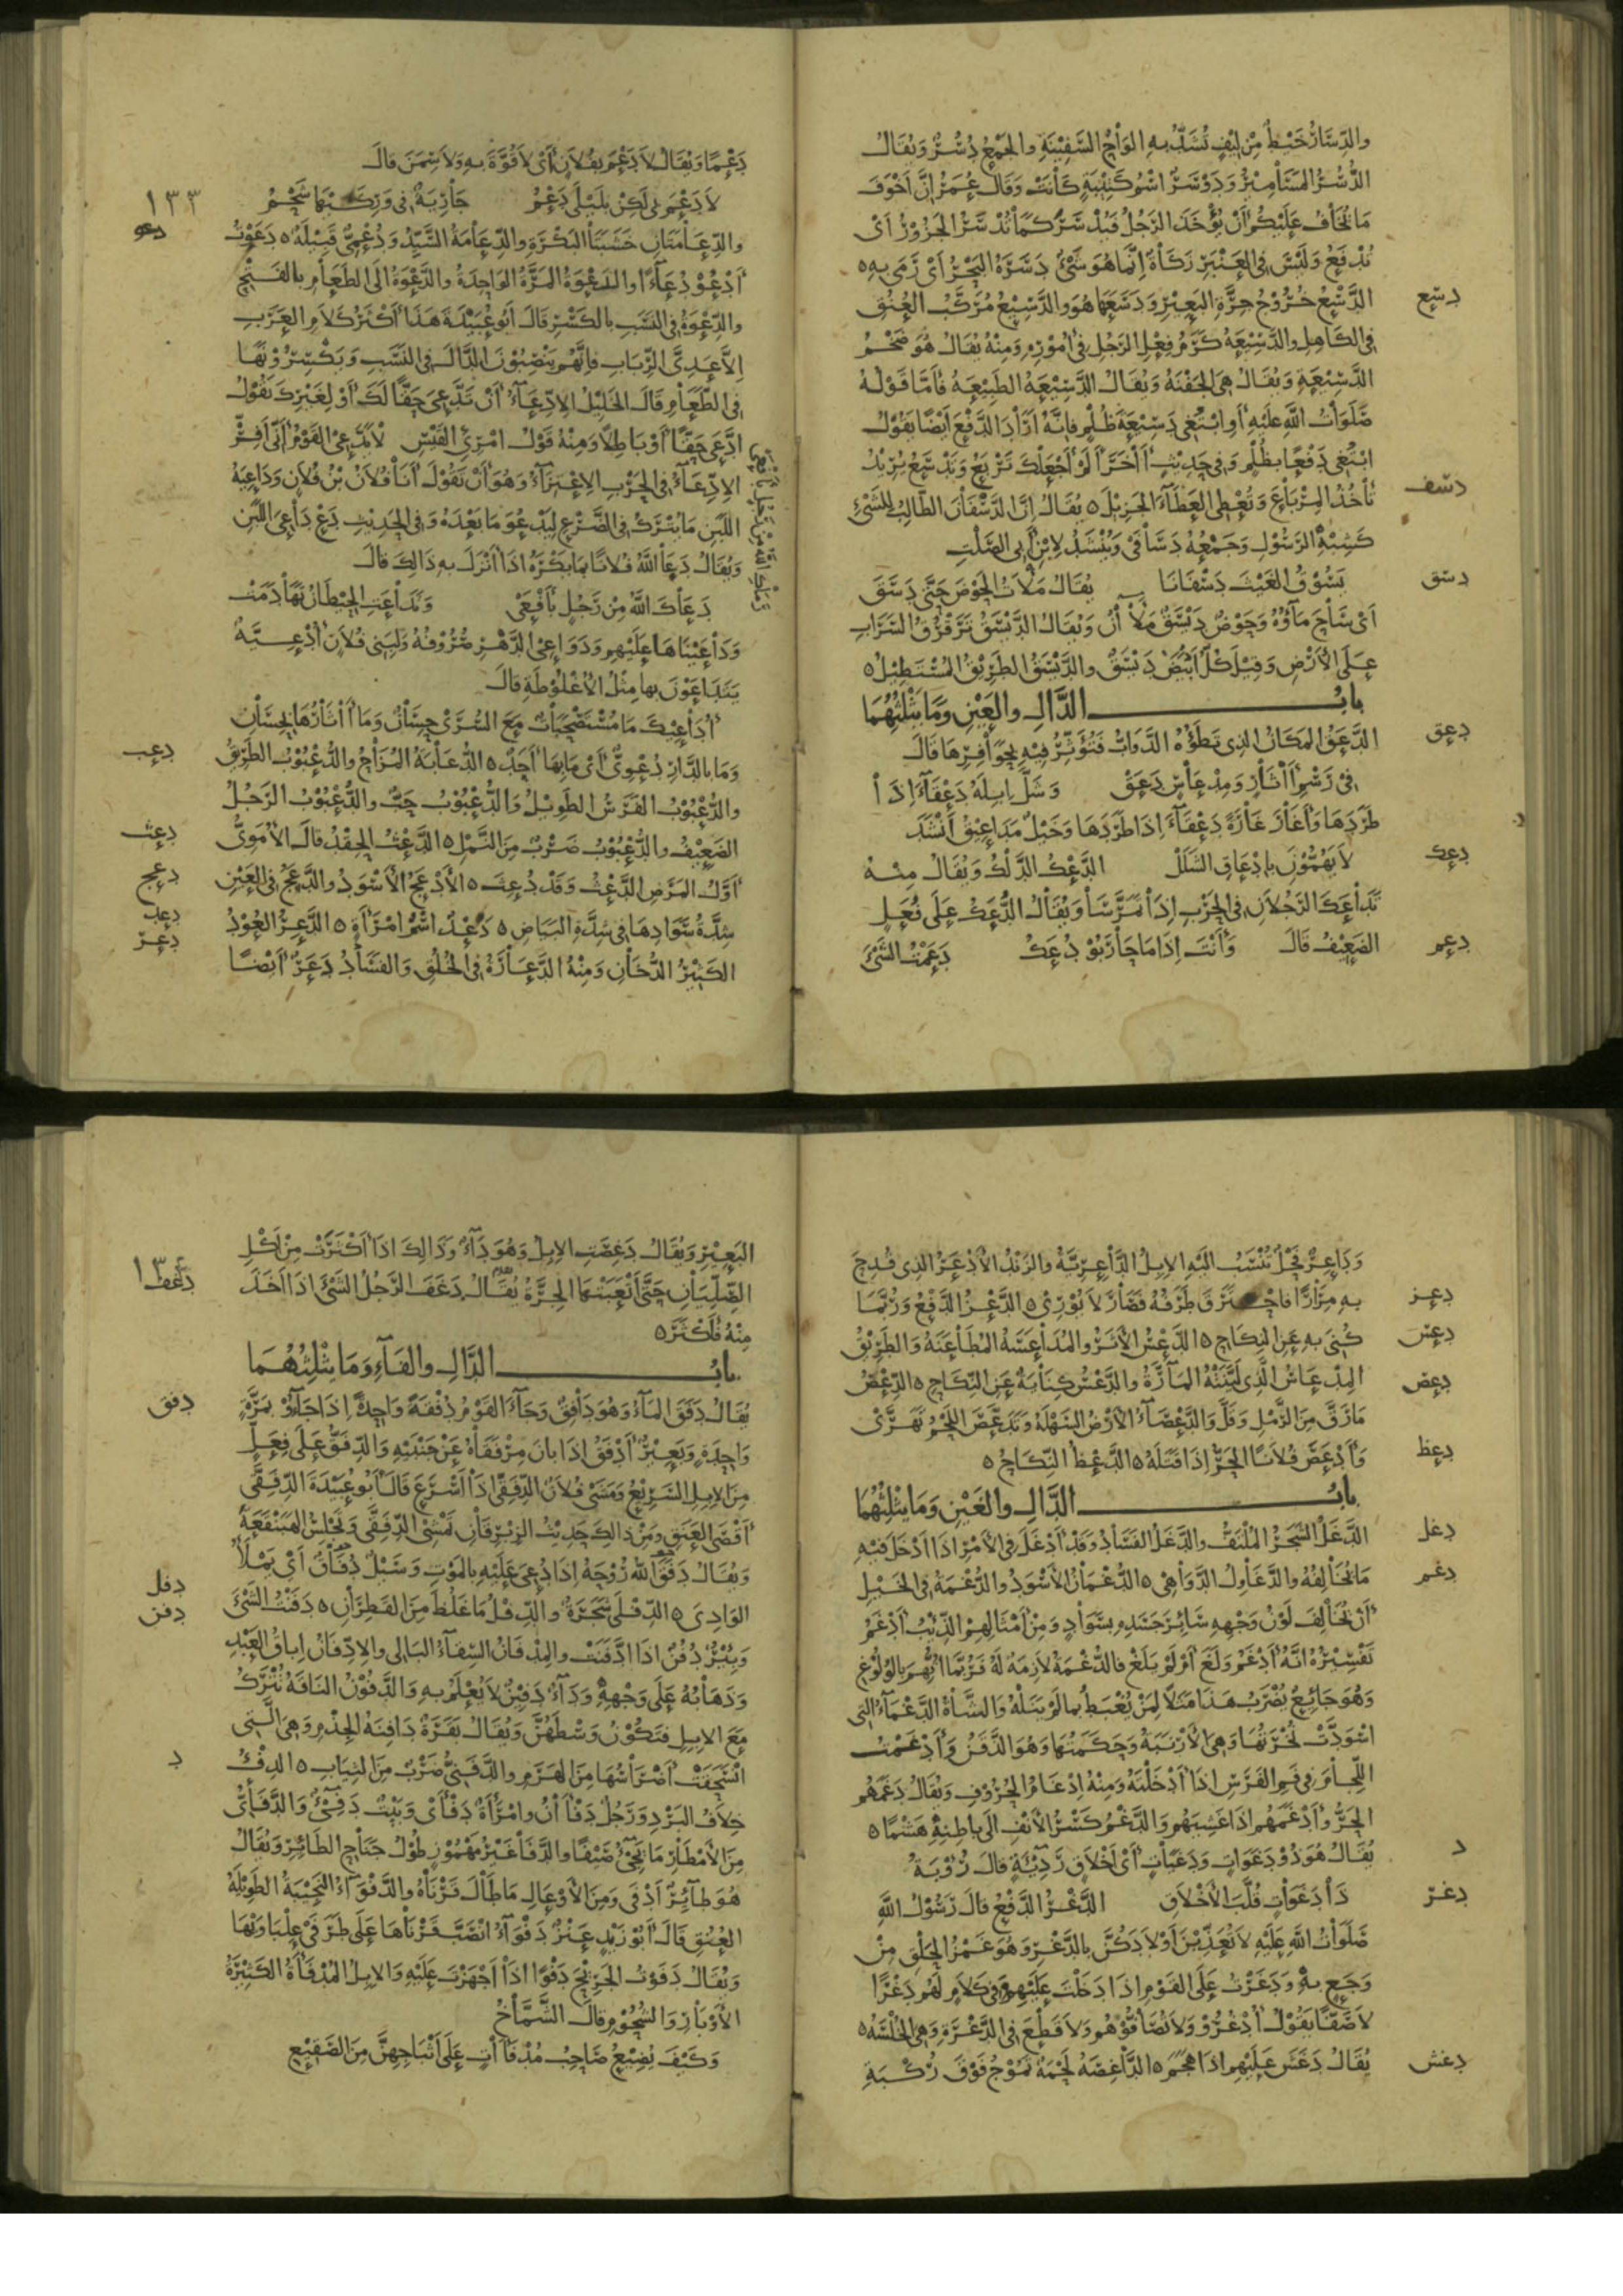 والدِّسَارُ خَيْطٌ مِنْ لِيْفٍ تُشَدُّ بِهِ أَلْوَاحُ السَّفِيْنَةِ والجَمْعُ دُسُرٌ وَيُقَالُ
الدُّسُرُ المَسَامِيْرُ وَدَوْسَرٌ اسْمُ كَتِيْبَةٍ كَانَتْ وَقَالَ عُمَرُ إِنَّ أَخْوَفَ
مَا أَخَافُ عَلَيْكُمْ أَنْ يُؤْخَذَ الرَّجُلُ فَيُدْسَرَ كَمَا تُدْسَرُ الجَزُوْرُ أَيْ
يُدْفَعُ وَلَيْسَ فِي العَنْبَرِ زَكَاةٌ إِنَّمَا هُوَ شَيْءٌ دَسَرَهُ البَحْرُ أَيْ رَمَى بِهِ ه
دسع الدَّسْعُ خُرُوْجُ جِرَّةِ البَعِيْرِ وَدَسَعَهَا هُوَ والدَّسِيْعُ مُرَكَّبُ العُنُقِ
فِي الكَاهِلِ والدَّسِيْعَةُ كَرَمُ فِعْلِ الرَّجُلِ فِي أُمُوْرِهِ وَمِنْهُ يُقَالُ هُوَ ضَخْمُ
الدَّسِيْعَةِ وَيُقَالُ هِيَ الجَفْنَةُ وَيُقَالُ الدَّسِيْعَةُ الطَّبِيْعَةُ فَأَمَّا قَوْلُهُ
صَلَوَاتُ اللَّهِ عَلَيْهِ أَوِ ابْتَغَى دَسِيْعَةَ ظُلْمٍ فَإِنَّهُ أَرَادَ الدَّفْعَ أَيْضًا يَقُوْلُ
ابْتَغَى دَفْعًا بِظُلْمٍ وَفِي حَدِيْثٍ أَخَرَ أَلَمْ أَجْعَلْكَ تَرْبَعُ وَتَدْسَعُ يُرِيْدُ
دسف تَأْخُذُ المِرْبَاعَ وَتُعْطِي العَطَاءَ الجَزِيْلَ ه يُقَالُ إِنَّ الدَّسْفَانَ الطَّالِبُ لِلشَّيْءِ
كَشِبْهِ الرَّسُوْلِ وَجَمْعُهُ دَسَافَى وَيُنْشَدُ لِابْنِ أَبِي الصَّلْتِ
دسق يَسُوْقُ الغَيْثَ دَسْفَانَا يُقَالُ مَلَأتُ الحَوْضَ حَتَّى دَسَقَ
أَيْ سَاحَ مَاؤُهُ وَحَوْضٌ دَيْسَقٌ مَلْآنُ وَيُقَالُ الدَّيْسَقُ تَرَقْرُقُ السَّرَابِ
عَلَى الأَرْضِ وَقِيْلَ كُلُّ أَبْيَضَ دَيْسَقٌ والدَّيْسَقُ الطَّرِيْقُ المُسْتَطِيْلُ ه
بابُ الدَّالِ والعَيْنِ وَمَا يَثْلِثُهُمَا
دعق الدَّعَقُ المَكَانُ الذِي تَطَؤُهُ الدَّوَابُّ فَتُؤَثِّرُ فِيْهِ بِحَوَافِرِهَا قَالَ
فِي رَسْمِ أَثَارٍ وَمِدْعَاسٍ دَعَقْ وَشَلَّ إِبِلَهُ دَعْقًا إِذَا
طَرَدَهَا وَأَغَارَ غَارَةً دَعْقَاءَ إِذَا طَرَدَهَا وَخَيْلٌ مَدَاعِيْقُ أَنْشَدَ
دعك لَا يَهُمُّوْنَ بِإِدْعَاقِ الشَّلَلْ الدَّعْكُ الدَّلْكُ وَيُقَالُ مِنْهُ
تَدَاعَكَ الرَّجُلَانِ فِي الحَرْبِ إِذَا تَمَرَّسَا وَيُقَالُ الدُّعَكُ عَلَى فُعَلٍ
دعم الضَّعِيْفُ قَالَ وَأَنْتَ إِذَا مَا حَارَبُوْ دُعَكُ دَعَمْتُ الشَّيْءَ
دَعْمًا وَيُقَالُ لَا دَعْمَ بِفُلَانٍ أَيْ لَا قُوَّةَ بِهِ وَلَا سِمَنَ قَالَ
١٣٣
لَا دَعْمَ بِي لَكِنْ بِلَيْلَى دَعْمُ جَارِيَةٌ فِي وَرِكَيْهَا شَحْمُ
دعو والدِّعَامَتَانِ خَشَبَتَا البَكْرَةِ والدِّعَامَةُ السَّيِّدُ وَدُعْمِيٌّ قَبِيْلَةٌ ه دَعَوْتُ
أَدْعُوْ دُعَاءً والدَّعْوَةُ المَرَّةُ الوَاحِدَةُ والدَّعْوَةُ إِلَى الطَّعَامِ بِالفَتْحِ
والدِّعْوَةُ فِي النَّسَبِ بِالكَسْرِ قَالَ أَبُو عُبَيْدَةَ هَذَا أَكْثَرُ كَلَامِ العَرَبِ
إِلَّا عَدِيَّ الرِّبَابِ فَإِنَّهُمْ يَنْصِبُوْنَ الدَّالَ فِي النَّسَبِ وَيَكْسِرُوْنَهَا
فِي الطَّعَامِ قَالَ الخَلِيْلُ الإِدِّعَاءُ أَنْ تَدَّعِيَ حَقًّا لَكَ أَوْ لِغَيْرِكَ تَقُوْلُ
ادَّعَى حَقًّا أَوْ بَاطِلًا وَمِنْهُ قَوْلُ امْرِئِ القَيْسِ لَا يَدَّعِيْ القَوْمُ أَنِّي أَفِرّْ
الإِدِّعَاءُ فِي الحَرْبِ الإِعْتِزَاءُ وَهُوَ أَنْ تَقُوْلَ أَنَا فُلَانُ بْنُ فُلَانٍ وَدَاعِيَةُ
اللَّبَنِ مَا يُتْرَكُ فِي الضَّرْعِ لِيَدْعُوَ مَا بَعْدَهُ وَفِي الحَدِيْثِ دَعْ دَاعِيَ اللَّبَنِ
وَيُقَالُ دَعَا اللَّهُ فُلَانًا بِمَا يَكْرَهُ إِذَا أَنْزَلَ بِهِ ذَالِكَ قَالَ
دَعَاكَ اللَّهُ مِنْ رَجُلٍ بِأَفْعَى وَتَدَاعَتِ الحِيْطَانُ تَهَادَمَتْ
وَدَاعَيْنَاهَا عَلَيْهِمْ وَدَوَاعِيْ الدَّهْرِ صُرُوْفُهُ وَلِبَنِي فُلَانٍ أُدْعِيَّةٌ
يَتَدَاعَوْنَ بِهَا مِثْلُ الأُغْلُوْطَةِ قَالَ
أُدَاعِيْكَ مَا مُسْتَصْحَبَاتٌ مَعَ السُّرَى حِسَانٌ وَمَا أَثَارُهَا بِحِسَانِ
دعب وَمَا بِالدَّارِ دُعْوِيٌّ أَيْ مَا بِهَا أَحَدٌ ه الدُّعَابَةُ المُزَاحُ والدُّعْبُوْبُ الطَّرِيْقُ
والدُّعْبُوْبُ الفَرَسُ الطَّوِيْلُ وَالدُّعْبُوْبُ حَبٌّ والدُّعْبُوْبُ الرَّجُلُ
دعث الضَّعِيْفُ والدُّعْبُوْبُ ضَرْبٌ مِنَ النَّمْلِ ه الدَّعْثُ الحِقْدُ قَالَ الأُمَوِيُّ
دعج أَوَّلُ المَرَضِ الدَّعْثُ وَقَدْ دُعِثَ ه الأَدْعَجُ الأَسْوَدُ والدَّعَجُ فِي العَيْنِ
دعد شِدَّةُ سَوَادِهَا فِي شِدَّةِ البَيَاضِ ه دَعْدُ اسْمُ امْرَأَةٍ ه الدَّعِرُ العُوْدُ
دعر الكَثِيْرُ الدُّخَانِ وَمِنْهُ الدَّعَارَةُ فِي الخُلُقِ وَالفَسَادُ دَعَرٌ أَيْضًا
وَدَاعِرٌ فَحْلٌ تُنْسَبُ إِلَيْهِ الإِبِلُ الدَّاعِرِيَّةُ والزَّنْدُ الأَدْعَرُ الذِي قُدِحَ
دعز بِهِ مِرَارًا فَاحْتَرَقَ طَرَفُهُ فَصَارَ لَا يُوْرِيْ ه الدَّعْزُ الدَّفْعُ وَرُبَّمَا
دعس كُنِيَ بِهِ عَنِ النِّكَاحِ ه الدَّعْسُ الأَثَرُ والمُدَاعَسَةُ المُطَاعَنَةُ وَالطَّرِيْقُ
دعص المِدْعَاسُ الَّذِي لَيَّنَتْهُ المَارَّةُ والدَّعْسُ كِنَايَةٌ عَنِ النِّكَاحِ ه الدِّعْصُ
مَا رَقَّ مِنَ الرَّمْلِ وَقَلَّ وَالدَّعْصَاءُ الأَرْضُ السَّهْلَةُ وَتَدَعَّصَ اللَّحْمُ تَهَرَّى
دعظ وَأَدْعَصَ فُلَانًا الحَرُّ إِذَا قَتَلَهُ ه الدَّعْظُ النِّكَاحُ ه
بابُ الدَّالِ والغَيْنِ وَمَا يَثْلِثُهُمَا
دغل الدَّغَلُ الشَّجَرُ المُلْتَفُّ والدَّغَلُ الفَسَادُ وَقَدْ أَدْغَلَ فِي الأَمْرِ إِذَا أَدْخَلَ فِيْهِ
دغم مَا يُخَالِفُهُ والدَّغَاوِلُ الدَّوَاهِي ه الدُّغْمَانُ الأَسْوَدُ والدُّغْمَةُ فِي الخَيْلِ
أَنْ يُخَالِفَ لَوْنُ وَجْهِهِ سَائِرَ جَسَدِهِ بِسَوَادٍ وَمِنْ أَمْثَالِهِمْ الذِّئْبُ أَدْغَمُ
تَفْسِيْرُهُ أَنَّهُ أَدْغَمُ وَلَغَ أَوْ لَمْ يَلَغْ فَالدُّغْمَةُ لَازِمَةٌ لَهُ فَرُبَّمَا اتُّهِمَ بِالوُلُوْغِ
وَهُوَ جَائِعٌ يُضْرَبُ هَذَا مَثَلًا لِمَنْ يُغْبَطُ بِمَا لَمْ يَنَلْهُ وَالشَّاةُ الدَّغْمَاءُ التِي
اسْوَدَّتْ نُخْرَتُهَا وَهِيَ الأَرْنَبَةُ وَحَكَمَتُهَا وَهُوَ الذَّقَنُ وَأَدْغَمْتُ
اللِّجَامَ فِي فَمِ الفَرَسِ إِذَا أَدْخَلْتَهُ وَمِنْهُ إِدْغَامُ الحُرُوْفِ وَيُقَالُ دَغَمَهُمُ
الحَرُّ وَأَدْغَمَهُمْ إِذَا غَشِيَهُمْ وَالدَّغْمُ كَسْرُ الأَنْفِ إِلَى بَاطِنِهِ هَشْمًا ه
د يُقَالُ هُوَ ذُوْ دَغَوَاتٍ وَدَغَيَاتٍ أَيْ أَخْلَاقٍ رَدِيْئَةٍ قَالَ رُؤْبَةُ
دغر ذَا دَغَوَاتٍ قُلَّبَ الأَخْلَاقِ الدَّغْرُ الدَّفْعُ قَالَ رَسُوْلُ اللَّهِ
صَلَوَاتُ اللَّهِ عَلَيْهِ لَا تُعَذِّبْنَ أَوْلَادَكُنَّ بِالدَّغْرِ وَهُوَ غَمْزُ الحَلْقِ مِنْ
وَجَعٍ بِهِ وَدَغَرْتُ عَلَى القَوْمِ إِذَا دَخَلْتَ عَلَيْهِمْ وَفِي كَلَامٍ لَهُمْ دَغْرًا
لَا صَفًّا يَقُوْلُ أُدْغُرُوْ وَلَا تُصَافُّوْهُمْ وَلَا قَطْعَ فِي الدَّغْرَةِ وَهِيَ الخُلْسَةُ ه
دغش يُقَالُ دَغَشَ عَلَيْهِمْ إِذَا هَجَمَ ه الدَّاغِصَةُ لَحْمَةٌ تَمُوْجُ فَوْقَ رُكْبَةِ
البَعِيْرِ وَيُقَالُ دَغِصَتِ الإِبِلُ وَهُوَ دَاءٌ وَذَالِكَ إِذَا أَكْثَرَتْ مِنْ أَكْلِ
دغف الصِّلِّيَانِ حَتَّى أَتْعَبَتْهَا الجِرَّةُ يُقَالُ دَغَفَ الرَّجُلُ الشَّيْءَ إِذَا أَخَذَ
مِنْهُ فَأَكْثَرَ ه
بابُ الدَّالِ والفَاءِ وَمَا يَثْلِثُهُمَا
دفق يُقَالُ دَفَقَ المَاءُ وَهُوَ دَافِقٌ وَجَاءَ القَوْمُ دُفْقَةً وَاحِدَةً إِذَا جَاؤُوْ بِمَرَّةٍ
وَاحِدَةٍ وَبَعِيْرٌ أَدْفَقُ إِذَا بَانَ مِرْفَقَاهُ عَنْ جَنْبَيْهِ وَالدِّفَقُّ عَلَى فِعَلٍّ
مِنَ الإِبِلِ السَّرِيْعُ وَمَشَى فُلَانٌ الدِّفِقَّى إِذَا أَسْرَعَ قَالَ أَبُو عُبَيْدَةَ الدِّفِقَّى
أَقْصَى العَنَقِ وَمِنْ ذَالِكَ حَدِيْثُ الزِّبْرِقَانِ تَمْشِي الدِّفِقَّى وَتَجْلِسُ الهَبَنْقَعَةَ
وَيُقَالُ دَفَقَ اللَّهُ رُوْحَهُ إِذَا دُعِيَ عَلَيْهِ بِالمَوْتِ وَسَيْلٌ دُفَاقٌ أَيْ يَمْلَأُ
دفل دفن الوَادِيَ ه الدِّفْلَى شَجَرَةٌ والدِّفْلُ مَا غَلُظَ مِنَ القَطِرَانِ ه دَفَنْتُ الشَّيْءَ
وَبِئْرٌ دُفُنٌ إِذَا ادَّفَنَتْ والمِدْفَانُ السِّقَاءُ البَالِي والإِدِّفَانُ إِبَاقُ العَبْدِ
وَذَهَابُهُ عَلَى وَجْهِهِ وَدَاءٌ دَفِيْنٌ لَا يُعْلَمُ بِهِ وَالدَّفُوْنُ النَّاقَةُ تُتْرَكُ
مَعَ الإِبِلِ فَتَكُوْنُ وَسْطَهُنَّ وَيُقَالُ بَقَرَةٌ دَافِنَةُ الجِذْمِ وَهِيَ الَّتِي
د انْسَحَقَتْ أَضْرَاسُهَا مِنَ الهَرَمِ والدَّفَنِيُّ ضَرْبٌ مِنَ الثِّيَابِ ه الدِفْءُ
خِلَافُ البَرْدِ وَرَجُلٌ دَفْآنُ وامْرَأَةٌ دَفْأَى وَبَيْتٌ دَفِيْءٌ وَالدَّفَأِيُّ
مِنَ الأَمْطَارِ مَا يَجِيْءُ صَيْفًا والدَّفَا غَيْرُ مَهْمُوْزٍ طُوْلُ جَنَاحِ الطَّائِرِ وَيُقَالُ
هُوَ طَائِرٌ أَدْفَى وَمِنَ الأَوْعَالِ مَا طَالَ قَرْنَاهُ والدَّفْوَاءُ النَّجِيْبَةُ الطَّوِيْلَةُ
العُنُقِ قَالَ أَبُوْ زَيْدٍ عَنْزٌ دَفْوَاءُ انْصَبَّ قَرْنَاهَا عَلَى طَرَفَيْ عِلْبَاوَيْهَا
وَيُقَالُ دَفَوْتُ الجَرِيْحَ دَفْوًا إِذَا أَجْهَزْتَ عَلَيْهِ وَالإِبِلُ المُدْفَأَةُ الكَثِيْرَةُ
الأَوْبَارِ وَالشُّحُوْمِ قَالَ الشَّمَّاخُ
وَكَيْفَ يُضِيْعُ صَاحِبُ مُدْفَآتٍ عَلَى أَثْبَاجِهِنَّ مِنَ الصَّقِيْعِ